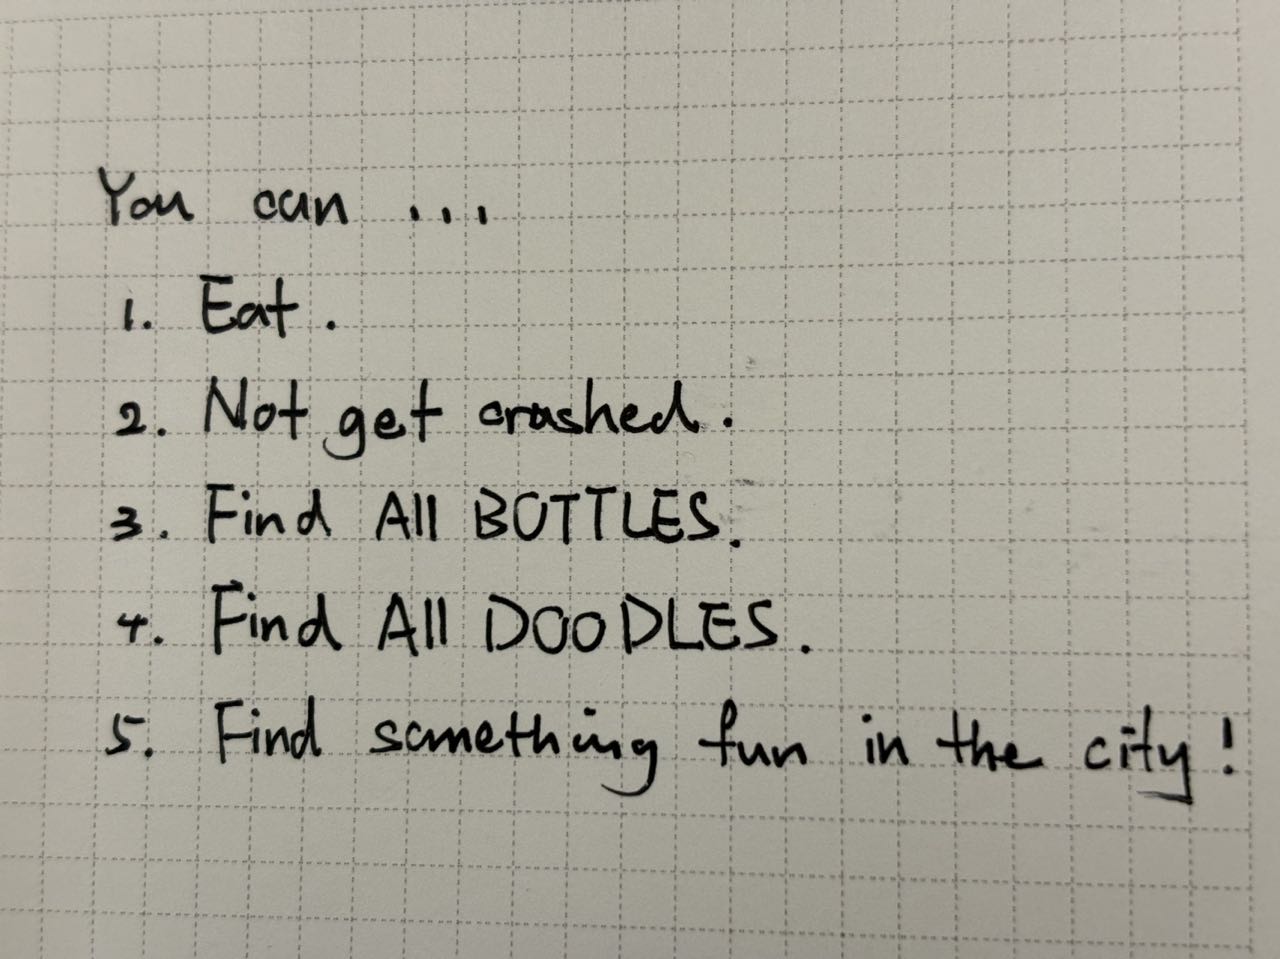 You can ...
1. Eat.
2. Not get crashed.
3. Find All BOTTLES.
4. Find All DOODLES.
5. Find something fun in the city!